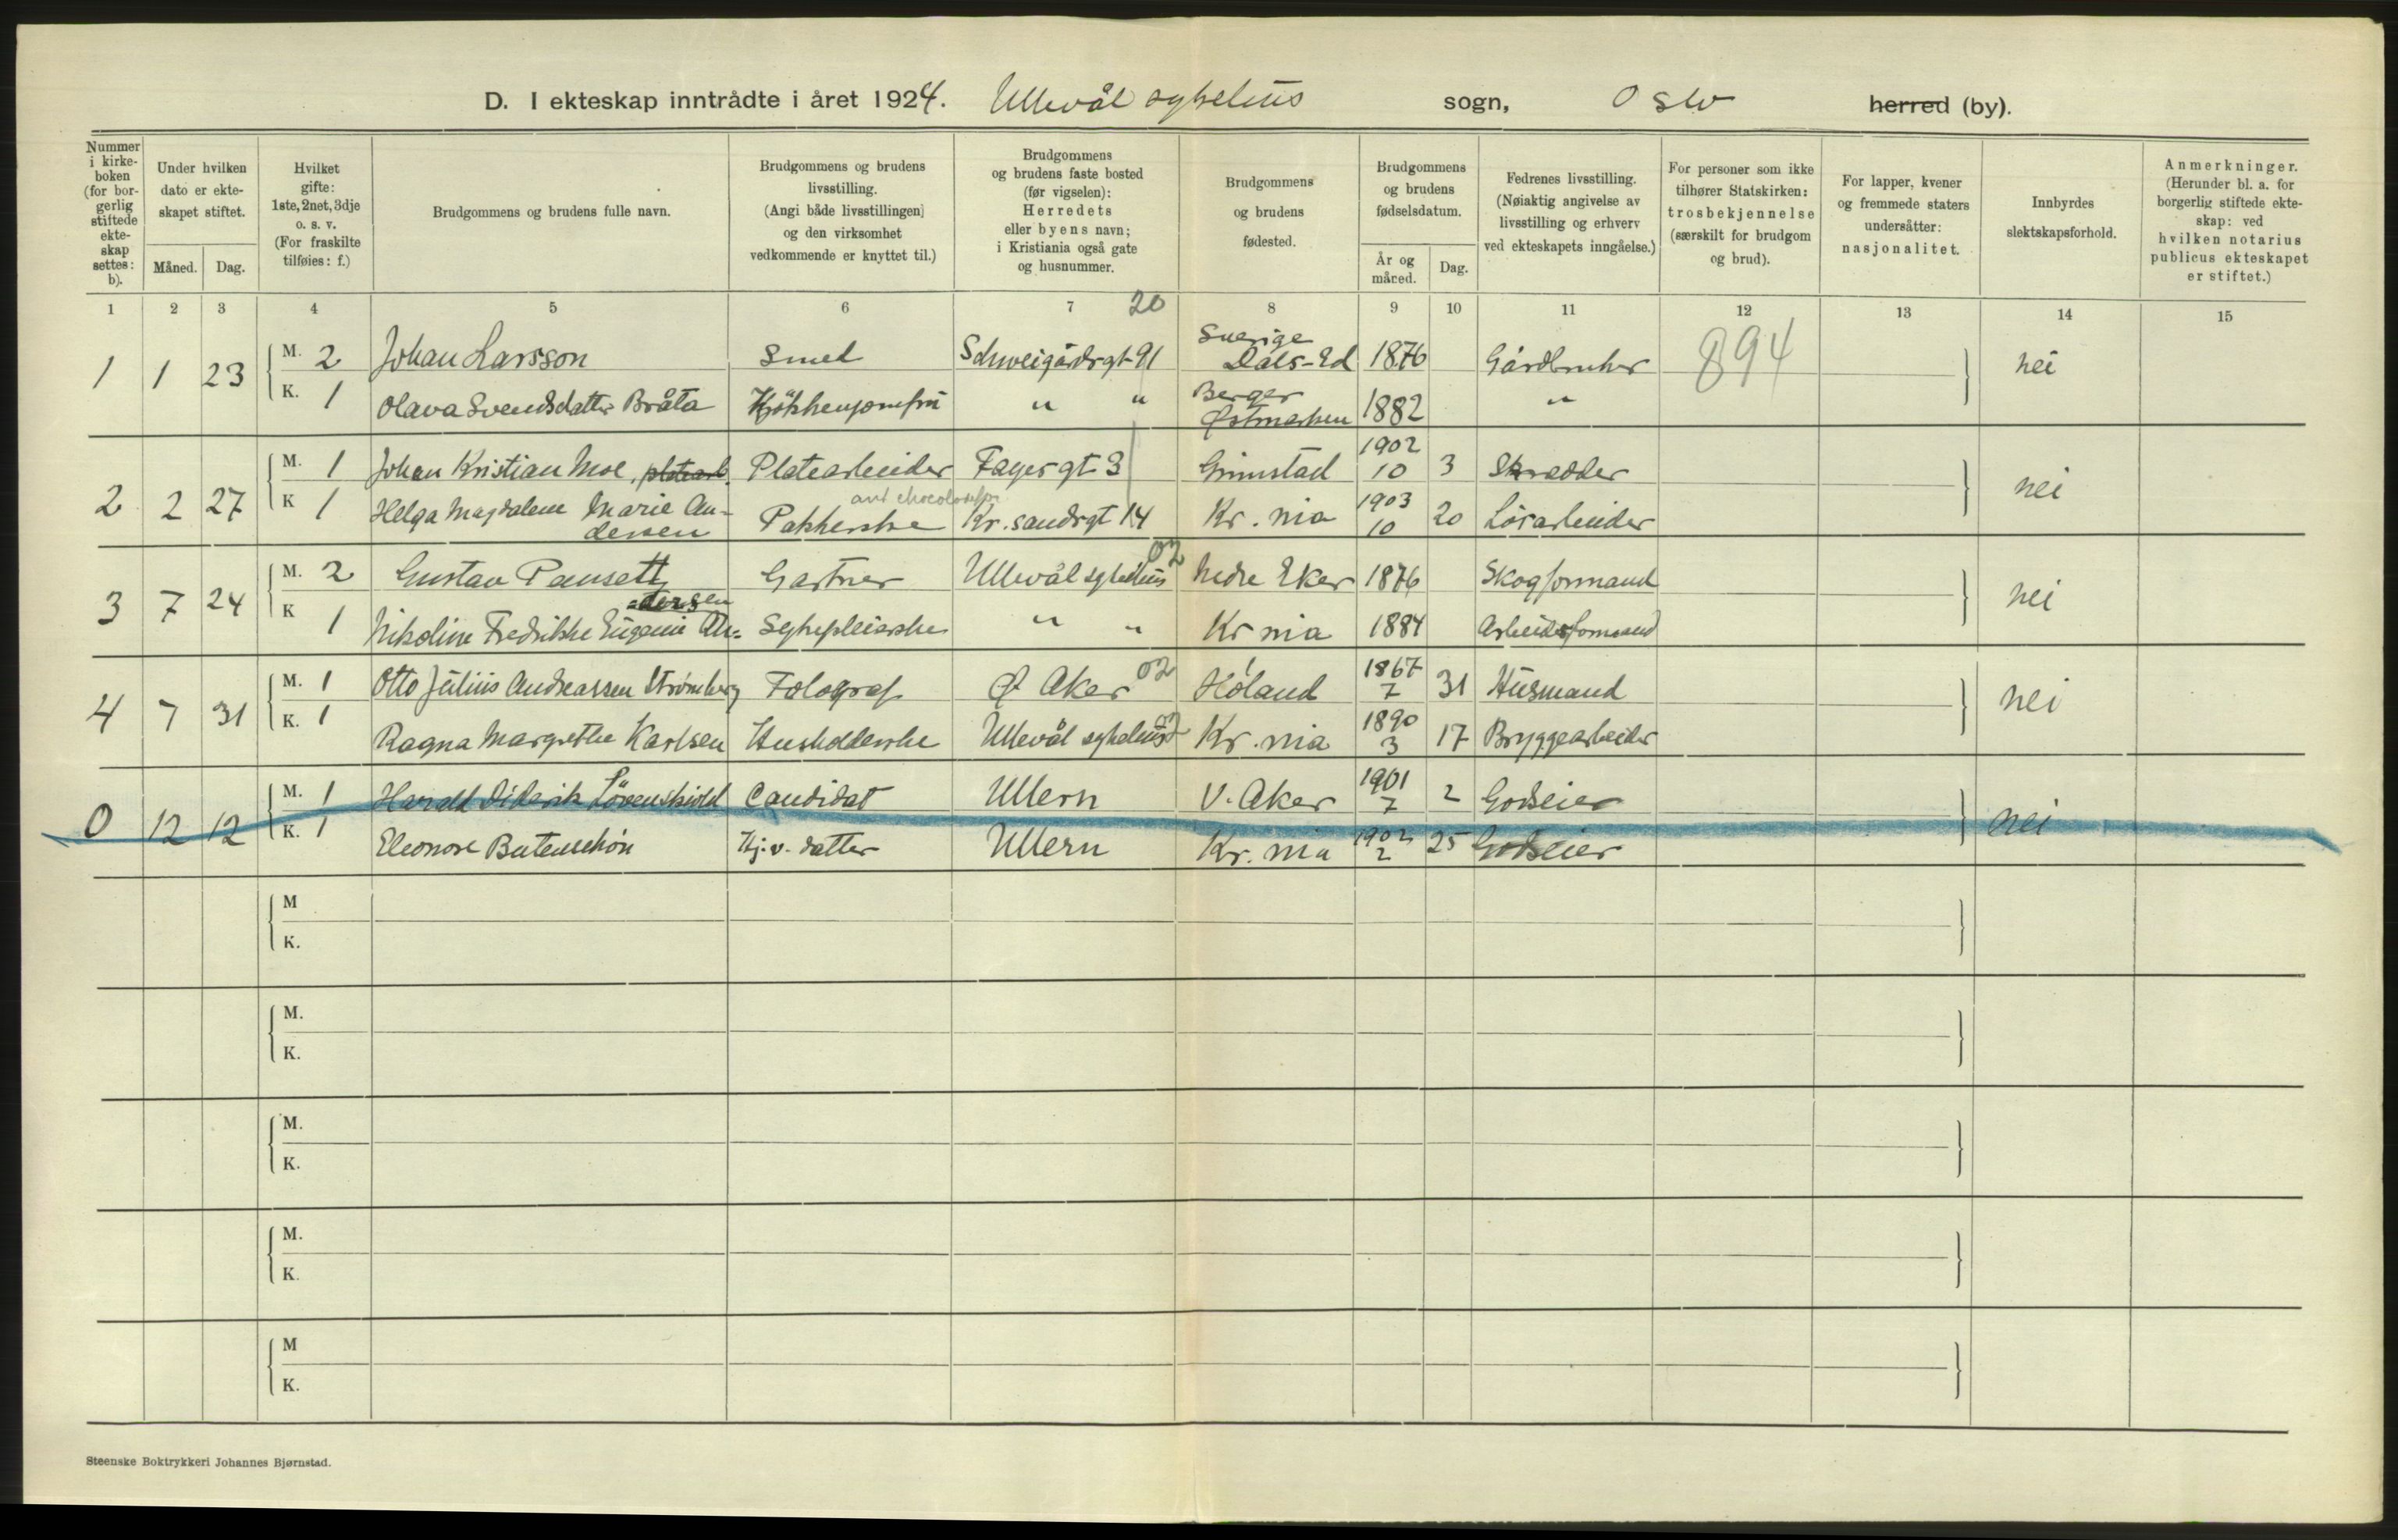 D. I ekteskap inntrådte i året 1924. Ullevål sykehus sogn, Oslo herred (by).
Nummer i kirke-boken (for bor-gerlig stiftede ekte-skap settes: b).
Under hvilken dato er ekte-skapet stiftet.
Måned. Dag.
Hvilket gifte: 1ste, 2net, 3dje o. s. v. (For fraskilte tilføies: f.)
Brudgommens og brudens fulle navn.
Brudgommens og brudens livsstilling. (Angi både livsstillingen og den virksomhet vedkommende er knyttet til.)
Brudgommens og brudens faste bosted (før vigselen): Herredets eller byens navn; i Kristiania også gate og husnummer.
Brudgommens og brudens fødested.
Brudgommens og brudens fødselsdatum.
År og måned. Dag.
Fedrenes livsstilling. (Nøiaktig angivelse av livsstilling og erhverv ved ekteskapets inngåelse.)
For personer som ikke tilhører Statskirken: trosbekjennelse (særskilt for brudgom og brud).
For lapper, kvener og fremmede staters undersåtter: nasjonalitet.
Innbyrdes slektskapsforhold.
Anmerkninger. (Herunder bl. a. for borgerlig stiftede ekte-skap: ved hvilken notarius publicus ekteskapet er stiftet.)
1 2 3 4 5 6 7 20 8 9 10 11 12 13 14 15
1 1 23 M. 2 Johan Larsson Smed Schweigårdsgt 91 Sverige Dals-Ed 1876 Gårdbruker 894 nei
K. 1 Olava Svendsdatter Bråta Kjøkkenjomfru " " Berger Østmarken 1882 "
2 2 27 M. 1 Johan Kristian Moe, platearb. Platearbeider Fagergt 3 Grimstad 1902 10 3 Skrædder nei
K 1 Helga Magdalene Marie An-dersen Pakkerske Kr.sandsgt 14 Kr.nia 1903 10 20 Løsarbeider
3 7 24 M. 2 Gustav Gartner Ullevål sykehus 02 Nedre Eker 1876 Skogformand nei
K 1 Nikoline Fredrikke Eugenie An-dersen Sykepleierske " " Kr nia 1884 Arbeidsformand
4 7 31 M. 1 Otto Julius Andreassen Strømberg Fotograf Ø Aker 02 Høland 1867 7 31 Husmand nei
K. 1 Ragna Margrethe Karlsen Husholderske Ullevål sykehus 02 Kr.nia 1890 3 17 Bryggearbeider
0 12 12 M. 1 Harald Diderik Løvenskiold Candidat Ullern V. Aker 1901 7 2 Godseier nei
K. 1 Eleonore Butenschøn Hj.v. datter Ullern Kr.nia 1902 2 25 Godseier
M
K.
M.
K.
M.
K.
M.
K.
M
K.
Steenske Boktrykkeri Johannes Bjørnstad.